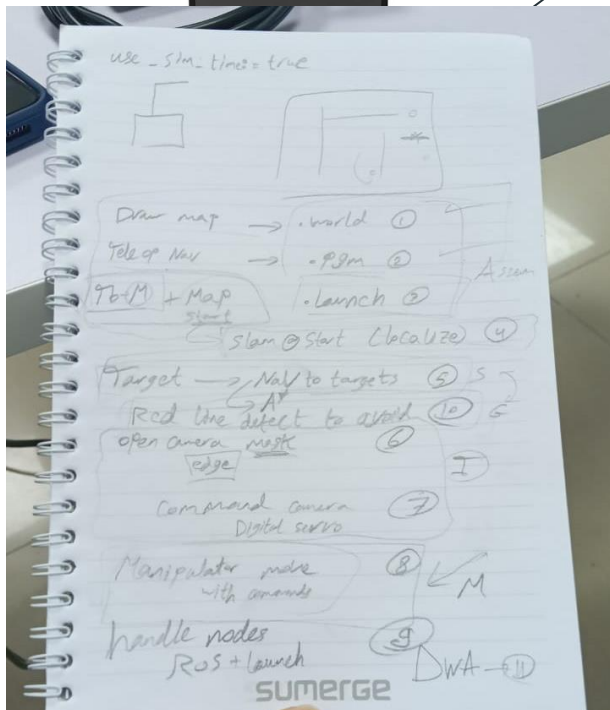 use_sim_time:= true
Draw map → .world ①
Teleop Nav → .pgm ②
+ Map .launch ③
start
Slam @ start (localize) ④
Target → Nav to targets ⑤ S
A*
Red line detect to avoid ⑩ G
open camera mask ⑥
edge I
Command camera ⑦
Digital servo
Manipulator move ⑧
with commands M
handle nodes ⑨
ROS + Launch DWA - ⑪
SUMERGE